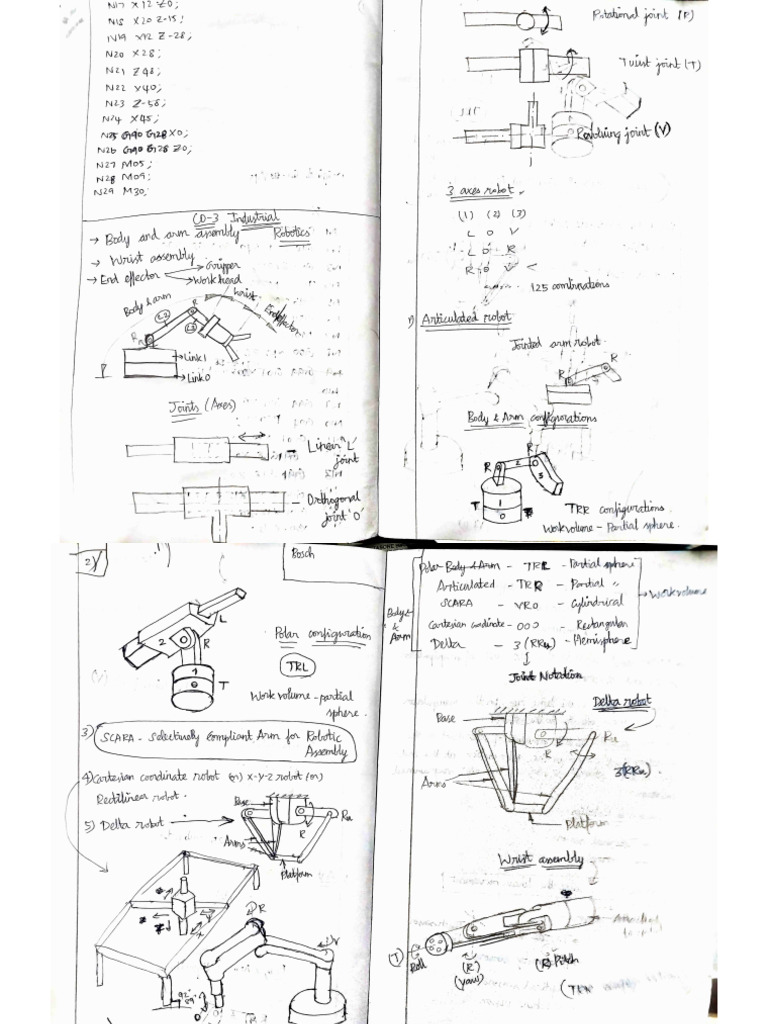 N17 X12 Z0;
N18 X20 Z-15;
N19 X12 Z-28;
N20 X28;
N21 Z48;
N22 X40;
N23 Z-58;
N24 X45;
N25 G90 G28 X0;
N26 G90 G28 Z0;
N27 M05;
N28 M09;
N29 M30;
CO-3 Industrial
Robotics
→ Body and arm assembly
→ Wrist assembly
→ End effector
Gripper
Work head
Body & arm
R
Wrist
End effector
L2
L3
R
Link 1
Link 0
Joints (Axes)
Linear 'L'
joint
Orthogonal
joint 'O'
Rotational joint (R)
Twist joint (T)
Revolving joint (V)
3 axes robot
(1) (2) (3)
L O V
L O R
R O V <
125 combinations
1) Articulated robot
Jointed arm robot
R
R
Body & Arm configurations
R
R
2
3
T
1
0
TRR configurations
Work volume - Partial sphere.
2)
Bosch
L
2
R
1
T
Polar configuration
TRL
Work volume - partial
sphere.
3) SCARA - Selectively Compliant Arm for Robotic
Assembly
4) Cartesian coordinate robot (or) x-y-z robot (or)
Rectilinea robot.
5) Delta robot →
Base
Ru
R
Arms
Platform
R
V
Body &
&
Arm
Polar Body & Arm - TRL - Partial sphere
Articulated - TRR - Partial "
SCARA - VRO - Cylindrical
Cartesian coordinate - OOO - Rectangular
Delta - 3(RRu) - Hemisphere
→ Work volume
Joint Notation
Delta robot
Base
Ru
R
R
3(RRu)
Arms
Platform
Wrist assembly
(T)
Roll
(R)
(yaw)
(R) Pitch